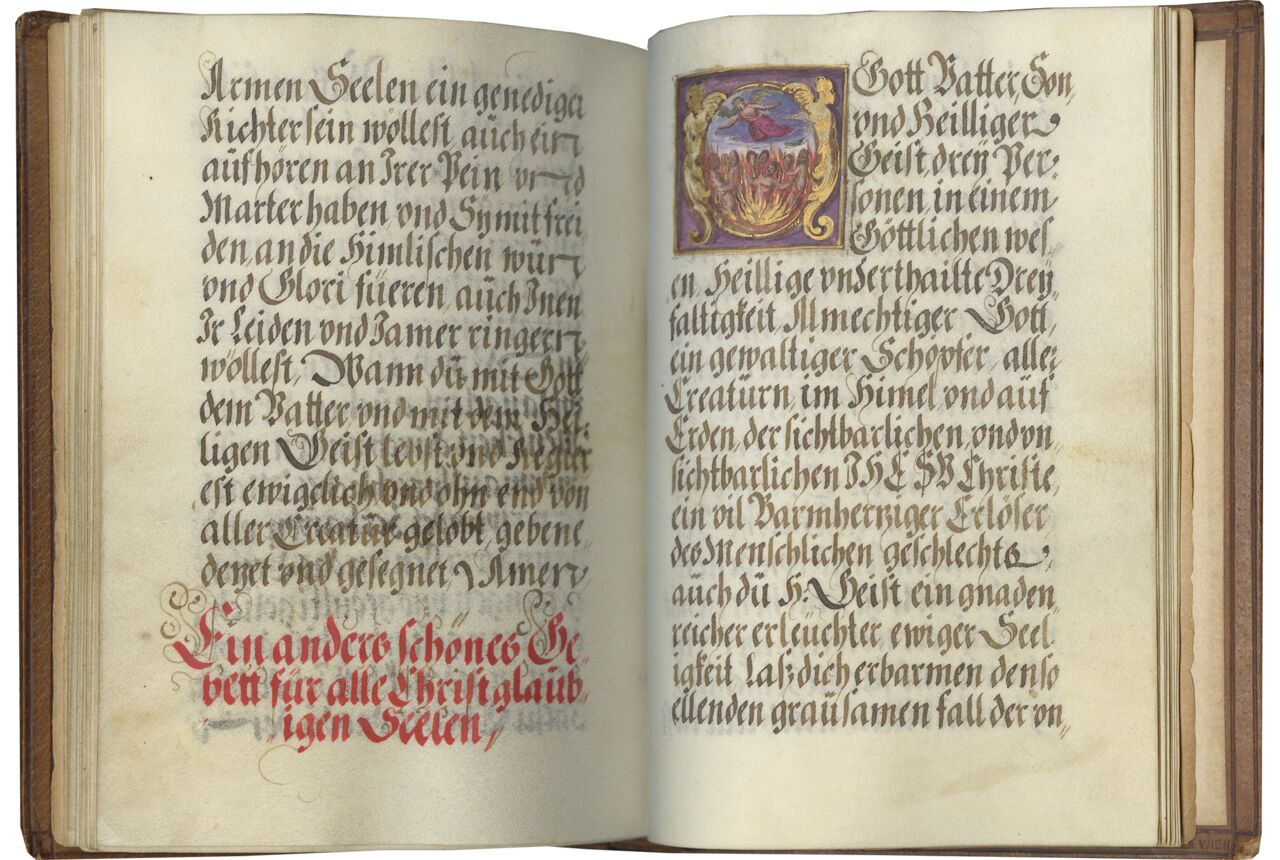 Armen Seelen ein genediger
Richter sein wöllest, auch ein
aufhören an Irer Pein vnd
Marter haben, vnd Sy mit frei
den, an die Himlischen würn
vnd Glori füeren, auch Inen
Ir Leiden vnd Jamer ringern
wöllest, Wann dü mit Gott
dem Vatter vnd mit dem Hei,
ligen Geist lebst vnd Regier
est ewigelich vnd ohn end von
aller Creatür gelobt, gebene,
deyet vnd gesegnet, Amen,
Ein anders schönes Ge,
bett für alle Christglaüb,
igen Seelen,
O
Gott Vatter, Son,
vnd Heilliger
Geist, dreÿ Per,
sonen in einem
Göttlichen wes,
en, Heillige vnzerthailte Dreÿ
faltigkeit, Almechtiger Gott,
ein gewaltiger Schöpfer, aller
Creatürn, im Himel, vnd auf
Erden, der sichtbarlichen, vnd vn
sichtbarlichen IHESV Christe,
ein vil Barmhertziger Erlöser
des Menschlichen geschlechts,
auch dü H: Geist ein gnaden,
reicher erleüchter, ewiger Seel,
igkeit, Lasz dich erbarmen den so
ellenden graüsamen fall der vn,